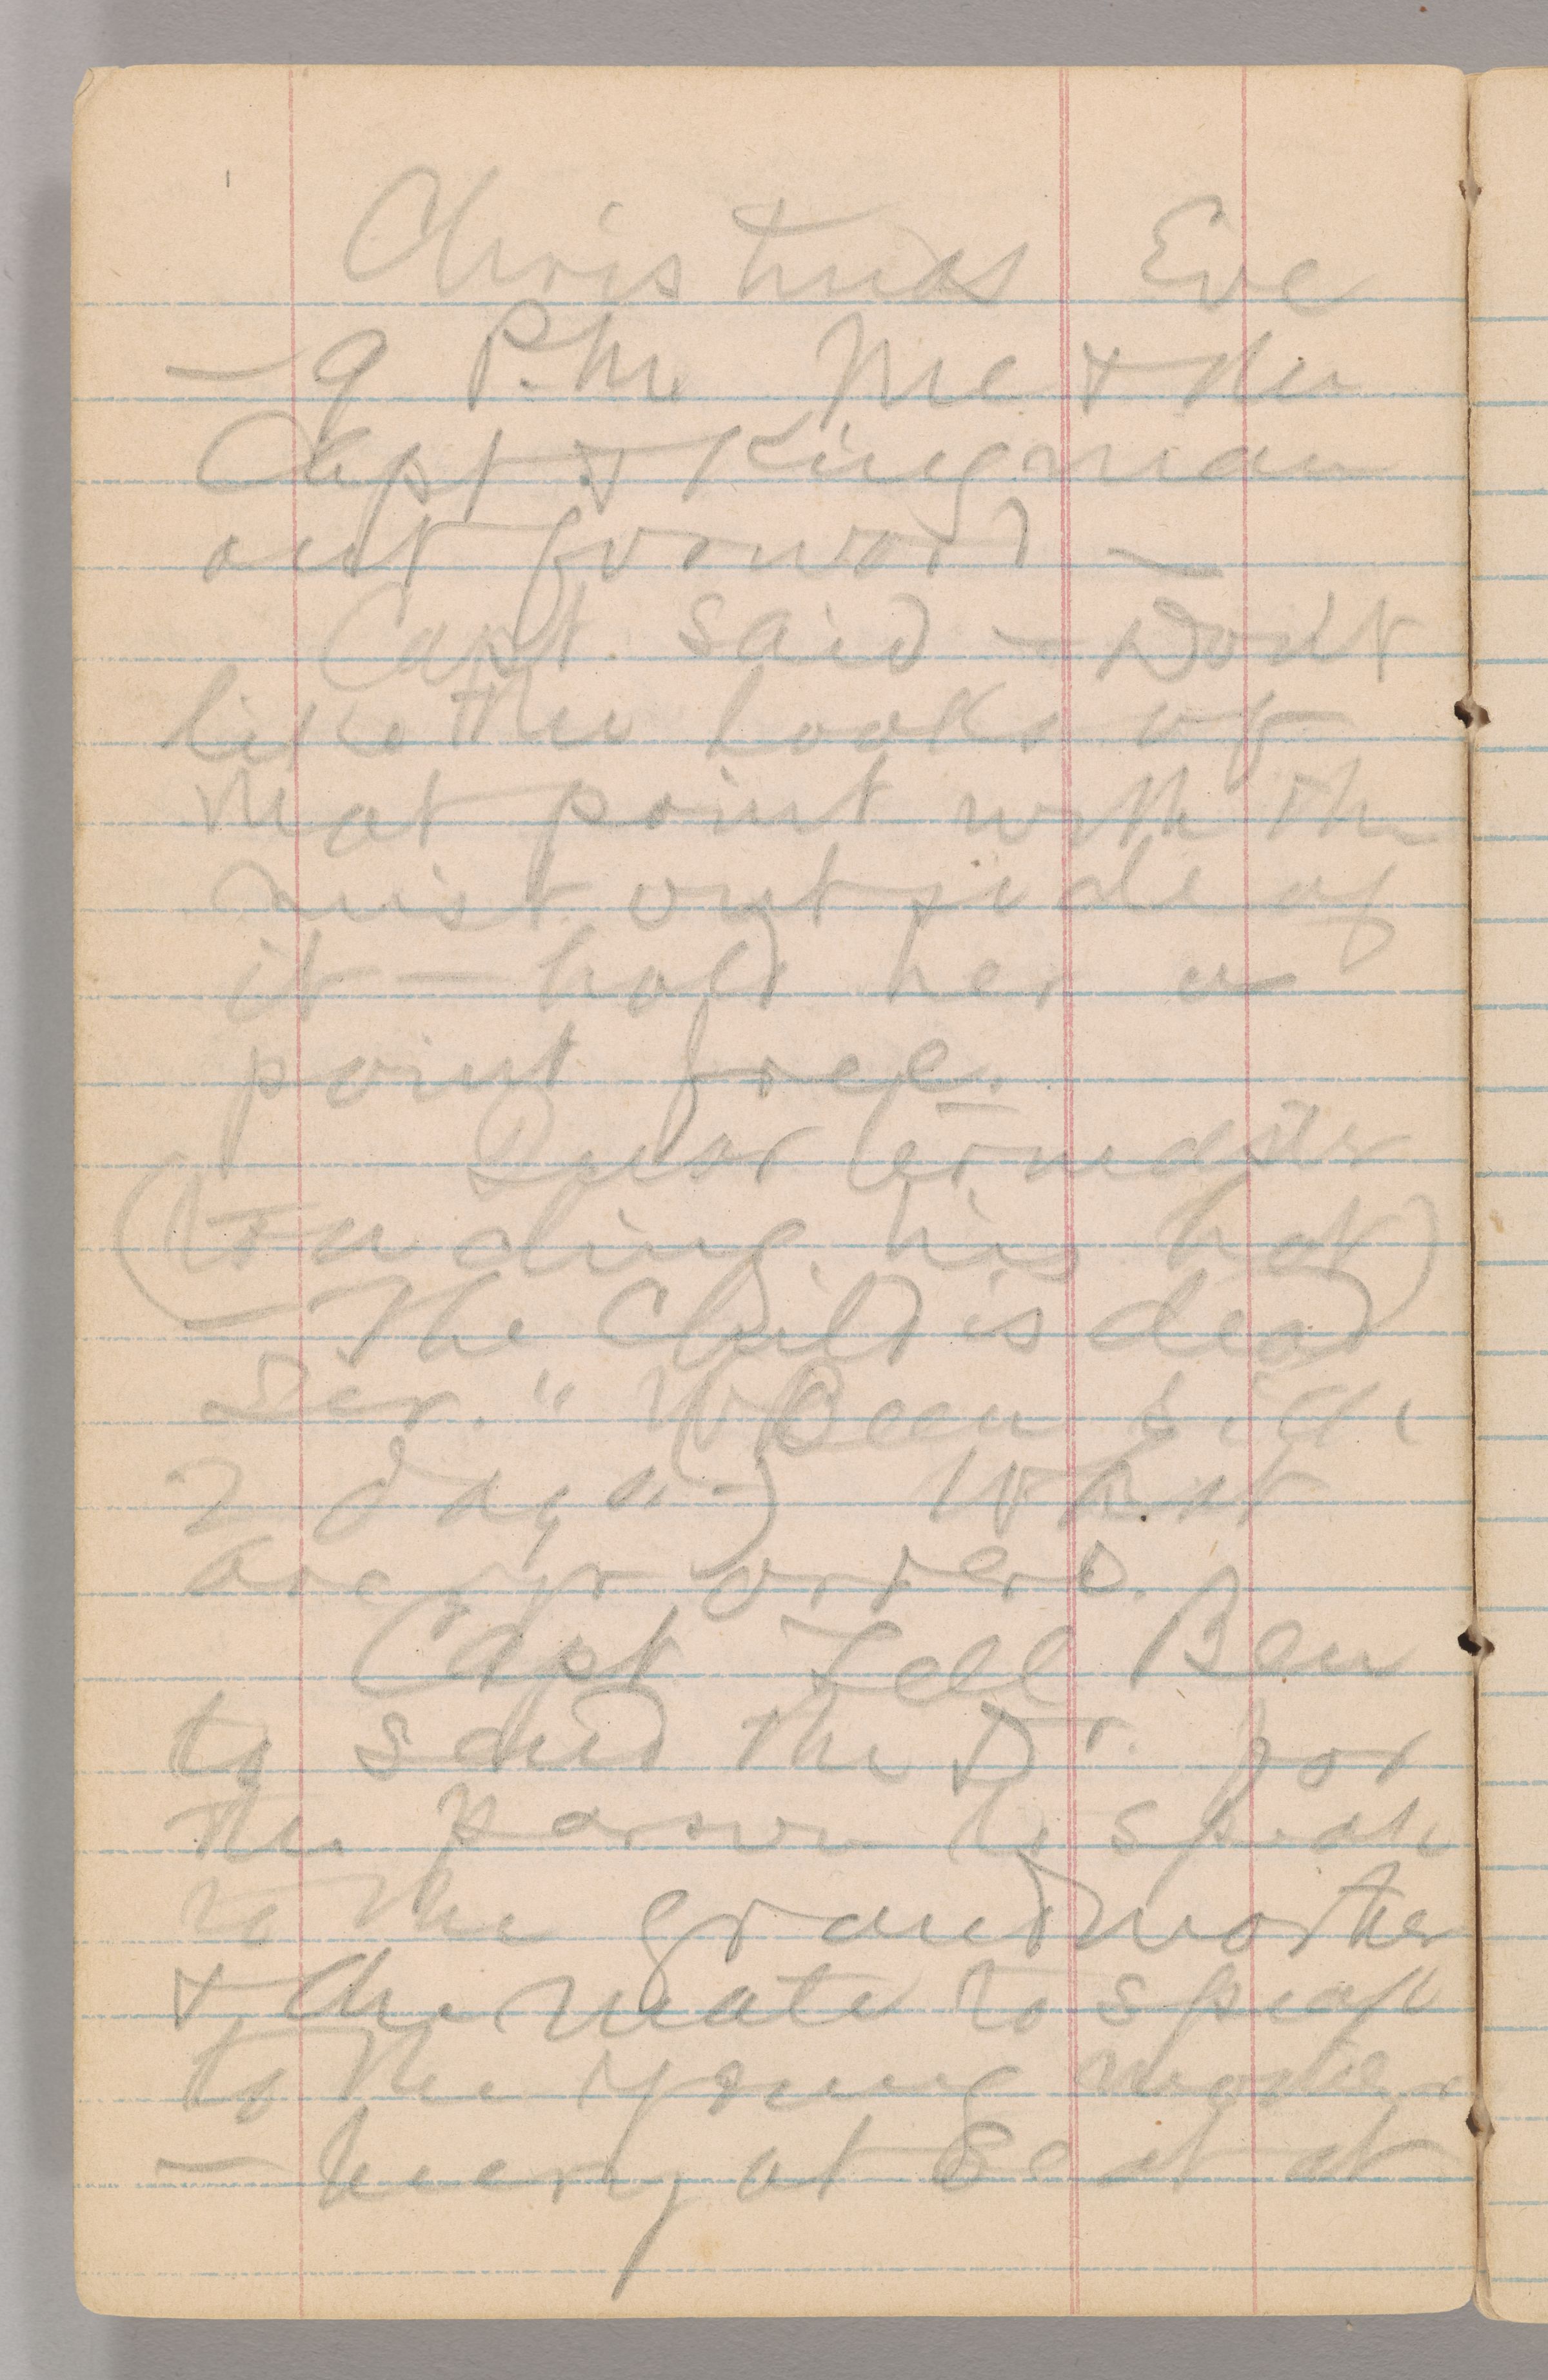 Christmas Eve
— 9 P.M. Me & the
Capt & Kingman
out forward —
Capt. said — Don't
like the looks of
that point with the
mist outside of
it — hold her a
point free.
Quarter master
(touching his hat)
— The Child is dead
Sir." (Been sick
2 days —) What
are yr orders.
Capt Tell Ben
to send the Dr. for
the parson to speak
to the grandmother
& the mate to speak
to the young mother
— bury at Sea at